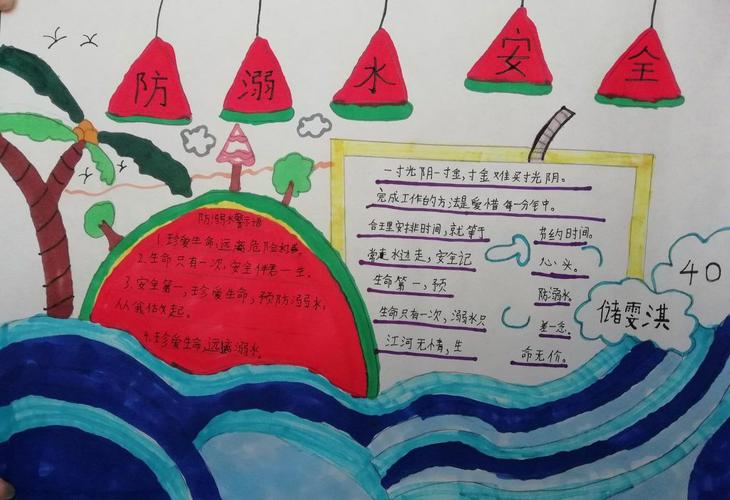 防溺水安全
防溺水警示语
1. 珍爱生命,远离危险
2. 生命只有一次,安全伴君一生。
3. 安全第一,珍爱生命,预防溺水,
从我做起。
4. 珍爱生命,远离溺水。
一寸光阴一寸金,寸金难买寸光阴。
完成工作的方法是爱惜每一分钟。
合王里安排时间,就等于 节约时间。
常走水边走,安全记 心头。
生命第一,预 防溺水。
生命只有一次,溺水只 差一念。
江河无情,生 命无价。
40
储雯淇